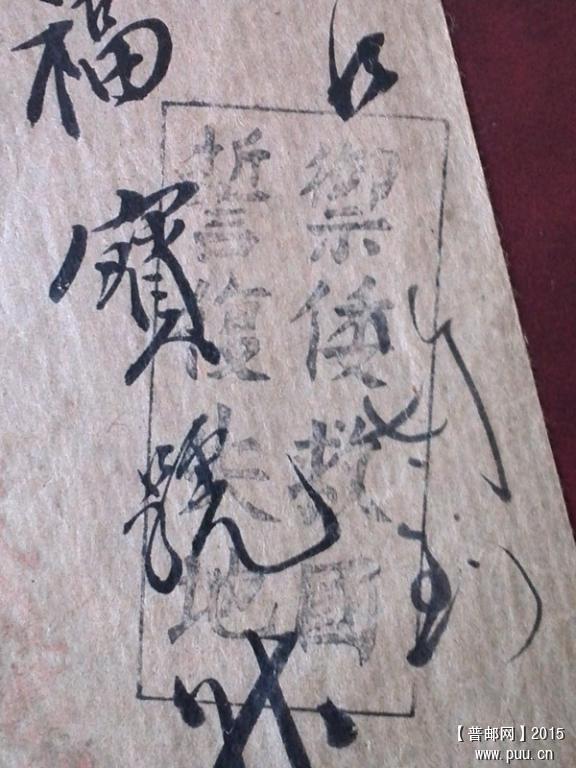 禦倭救國
誓復失地
福寶號
【普邮网】2015
www.puu.cn